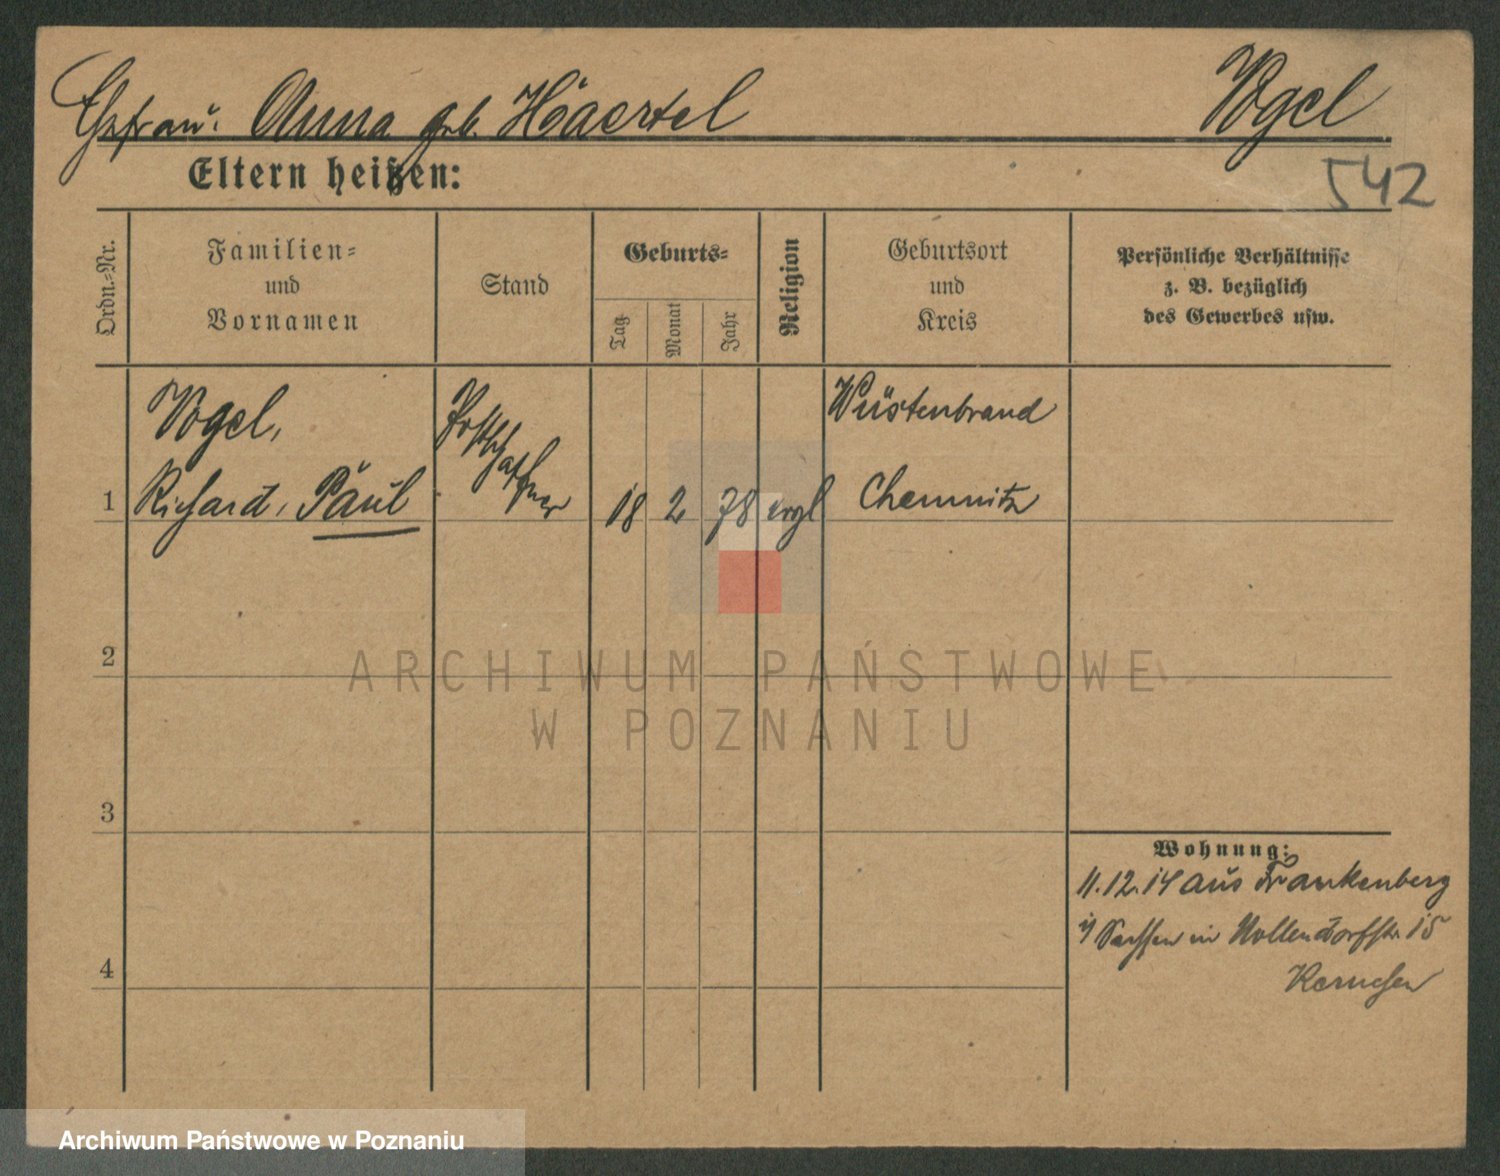 Ehefrau: Anna geb. Haertel Vogel
Eltern heißen:
542
Ordn.=Nr.
Familien=
und
Vornamen
Stand
Geburts=
Tag
Monat
Jahr
Religion
Geburtsort
und
Kreis
Persönliche Verhältnisse
z. B. bezüglich
des Gewerbes usw.
Vogel,
Richard, Paul
Postschaffner
1
18 2 78 evgl
Wüstenbrand
Chemnitz
2
3
4
Wohnung:
11.12.14 aus Frankenberg
i/ Sachsen in Nollendorfstr. 15
ARCHIWUM PAŃSTWOWE
W POZNANIU
Archiwum Państwowe w Poznaniu